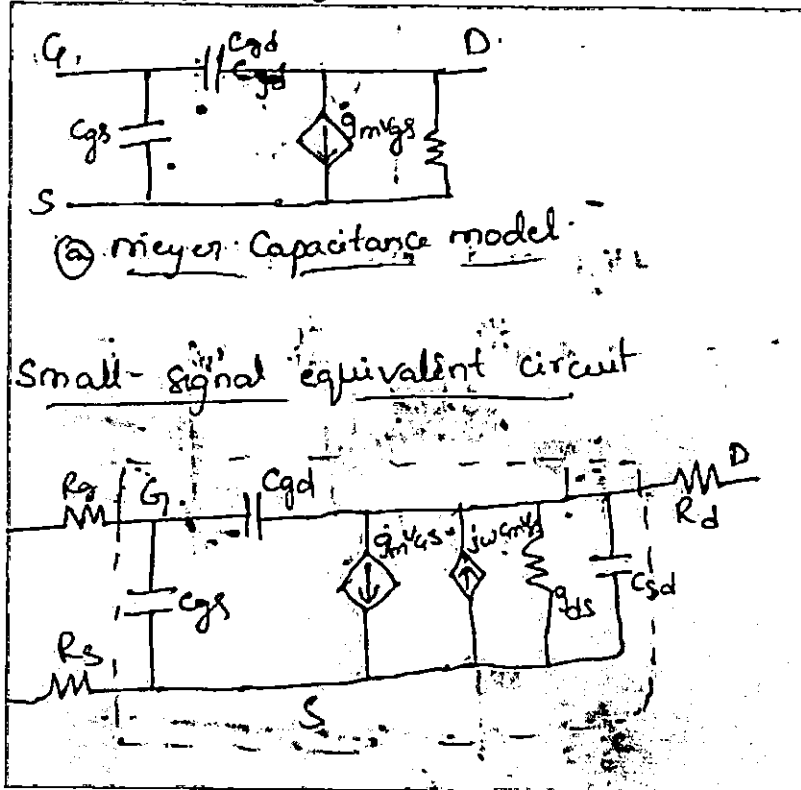 G Cgd D
Cgd
Cgs gmVgs
S
(a) Meyer Capacitance model
Small-signal equivalent circuit
Rg G Cgd D
Rd
gmVgs jωCmVgs
Cgs gds Csd
Rs
S